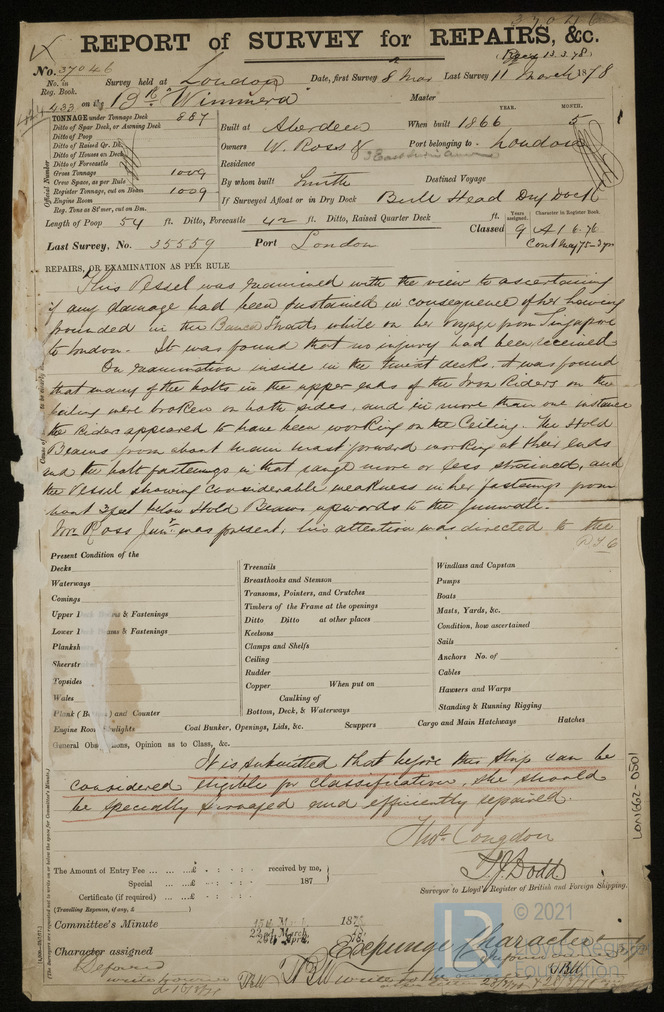 37046
REPORT of SURVEY for REPAIRS, &c.
No. 37046
13.3.78
No. in Reg. Book. Survey held at London Date, first Survey 8 Mar Last Survey 11 March 1878
433 on the Bk "Wimmera" Master
TONNAGE under Tonnage Deck 887
Ditto of Spar Deck, or Awning Deck
Ditto of Poop
Ditto of Raised Qr. Dk.
Ditto of Houses on Deck
Ditto of Forecastle
Gross Tonnage 1009
Crew Space, as per Rule
Register Tonnage, cut on Beam 1009
Engine Room
Reg. Tons as St'mer, cut on Bm.
Official Number
YEAR. MONTH.
Built at Aberdeen When built 1866 5
Owners W. Ross & Port belonging to London
Residence
By whom built Smith Destined Voyage
If Surveyed Afloat or in Dry Dock Bull Head Dry Dock
Length of Poop 54 ft. Ditto, Forecastle 42 ft. Ditto, Raised Quarter Deck ft.
Years assigned. Character in Register Book.
Classed 9 A1 6.76
Cont May 75-3 yrs
Last Survey, No. 35559 Port London
REPAIRS, OR EXAMINATION AS PER RULE
This Vessel was examined with the view to ascertaining
if any damage had been sustained in consequence of her having
pounded in the Banca Straits while on her voyage from Singapore
to London. It was found that no injury had been received
On examination inside in the twixt decks, it was found
that many of the bolts in the upper ends of the Iron Riders on the
were broken on both sides, and in more than one instance
the Riders appeared to have been working on the Ceiling. The Hold
Beams from about main mast forward working at their ends
and the bolt fastenings in that range more or less strained, and
the Vessel showing considerable weakness in her fastenings from
about 3 feet below Hold Beams upwards to the gunwale.
Mr. Ross Junr. was present, his attention was directed to the
Present Condition of the
Decks
Waterways
Comings
Upper & Fastenings
Lower & Fastenings
Planksh
Sheerstr
Topsides
Wales
Plank (B ) and Counter
Engine Room Skylights
Treenails
Breasthooks and Stemson
Transoms, Pointers, and Crutches
Timbers of the Frame at the openings
Ditto Ditto at other places
Keelsons
Clamps and Shelfs
Ceiling
Rudder
Copper When put on
Caulking of
Bottom, Deck, & Waterways
Coal Bunker, Openings, Lids, &c. Scuppers
Windlass and Capstan
Pumps
Boats
Masts, Yards, &c.
Condition, how ascertained
Sails
Anchors No. of
Cables
Hawsers and Warps
Standing & Running Rigging
Cargo and Main Hatchways Hatches
General Observations, Opinion as to Class, &c.
It is submitted that before this Ship can be
considered eligible for classification, she should
be specially surveyed and efficiently repaired.
Thos. Congdon
T. J. Dodd
Surveyor to Lloyd's Register of British and Foreign Shipping.
The Amount of Entry Fee ... ... ...£ : : received by me,
Special ... ...£ : : 187
Certificate (if required) ... ...£ : :
(Travelling Expenses, if any, £ )
Committee's Minute 15th March 1878
22nd March, 78.
26th April, 78.
Character assigned Expunge Character
Deferred
LON662-0501
© 2021
Lloyd's Register
Foundation